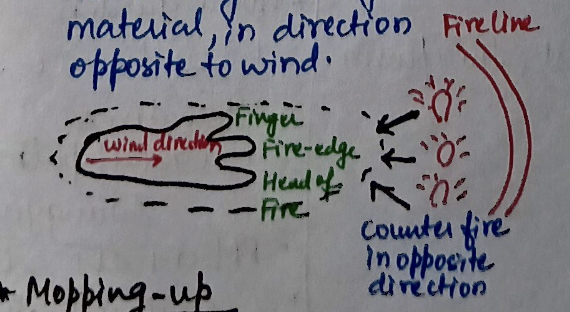 material, in direction
opposite to wind.
Fireline
Finger
wind direction
Fire-edge
Head of
Fire
Counter fire
in opposite
direction
* Mopping-up